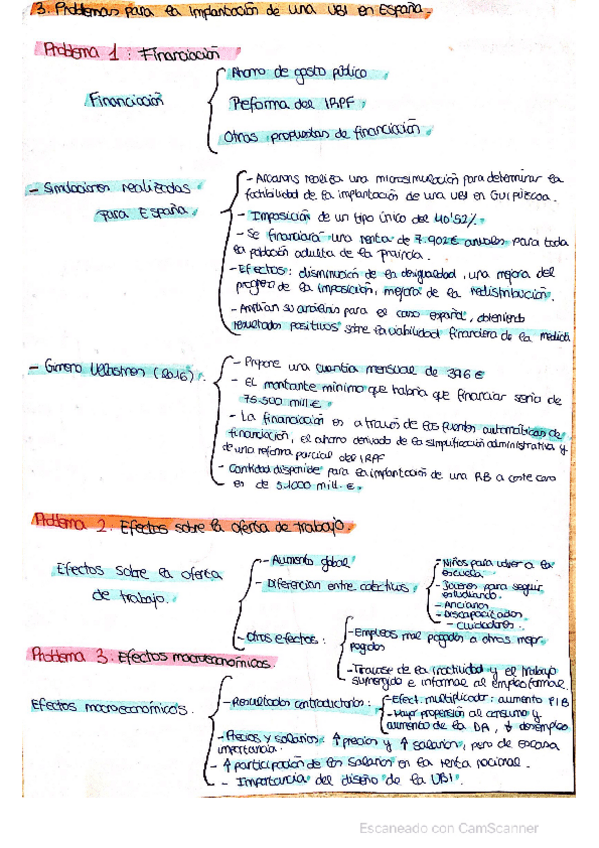 3. Problemas para la implantación de una UBI en España.
Problema 1: Financiación
Financiación
Ahorro de gasto público
Reforma del IRPF
Otras propuestas de financiación
- Simulaciones realizadas
para España
- Arcarons realiza una microsimulación para determinar la
factibilidad de la implantación de una UBI en GUIPÚZCOA.
- Imposición de un tipo único del 40'52%
- Se financiará una renta de 7.902€ anuales para toda
la población adulta de la provincia.
- Efectos: disminución de la desigualdad, una mejora del
progreso de la imposición, mejora de la redistribución.
- Amplían su análisis para el caso español, obteniendo
resultados positivos sobre la viabilidad financiera de la medida
- Gimeno Ullastres (2016).
- Propone una cuantía mensual de 396 €
- El montante mínimo que habría que financiar sería de
75.500 mill. €
- La financiación es a través de las fuentes automáticas de
financiación, el ahorro derivado de la simplificación administrativa y
de una reforma parcial del IRPF
- Cantidad disponible para la implantación de una RB a coste cero
es de 51000 mill. €.
Problema 2: Efectos sobre la oferta de trabajo.
Efectos sobre la oferta
de trabajo.
- Aumento global
- Diferencian entre colectivos
- Niños para volver a la
escuela
- Jóvenes para seguir
estudiando.
- Ancianos
- Discapacitados
- Cuidadores.
- Otros efectos:
- Empleos mal pagados a otros mejor
pagados
- Trasvase de la inactividad y el trabajo
sumergido e informal al empleo formal.
Problema 3. Efectos macroeconómicos.
Efectos macroeconómicos.
- Resultados contradictorios:
- Efect. multiplicador: aumento PIB
- Mayor propensión al consumo y
aumento de la DA, ↓ desempleo
- Precios y salarios: ↑ precios y ↑ salarios, pero de escasa
importancia.
- ↑ participación de los salarios en la renta nacional.
- Importancia del diseño de la UBI.
Escaneado con CamScanner